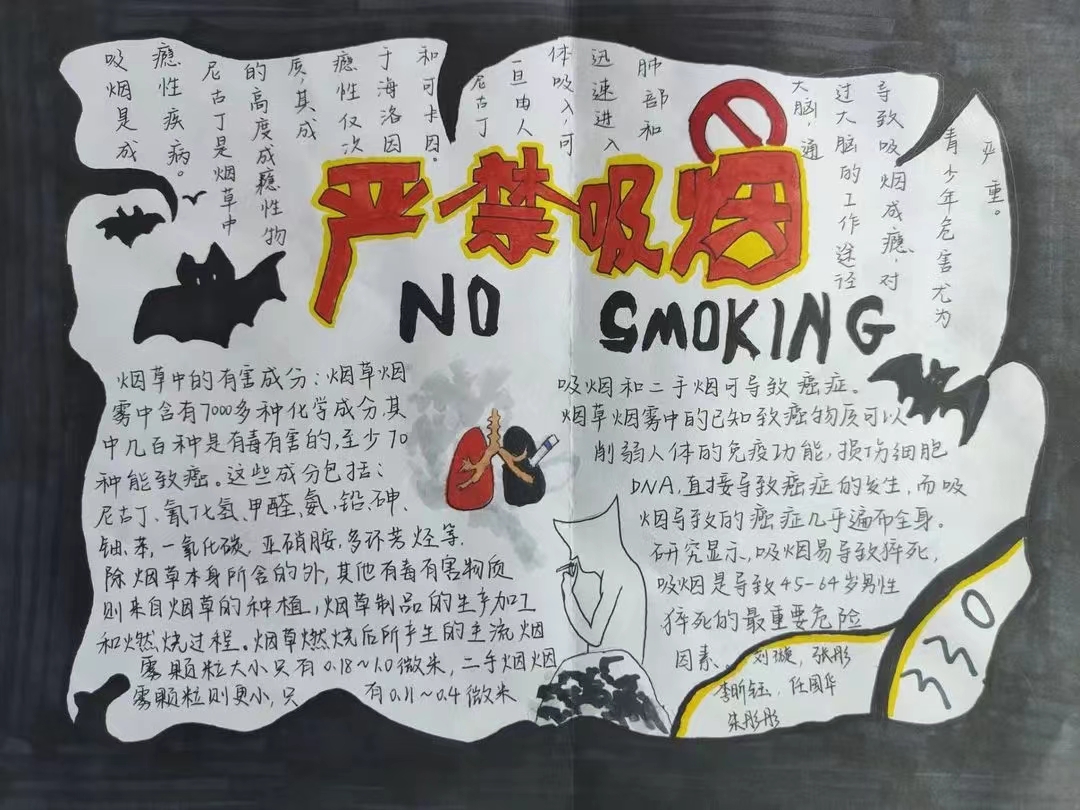 吸烟是成
瘾性疾病。
尼古丁是烟草中
的高度成瘾性物
质,其成
瘾性仅次
于海洛因
和可卡因。
尼古丁
一旦由人
体吸入,可
迅速进入
肺部和
大脑,通
过大脑的工作途径
导致吸烟成瘾,对
青少年危害尤为
严重。
严禁吸烟
NO SMOKING
烟草中的有害成分:烟草烟
雾中含有7000多种化学成分,其
中几百种是有毒有害的,至少70
种能致癌。这些成分包括:
尼古丁、氰化氢、甲醛、氨、铅、砷、
铀、苯,一氧化碳、亚硝胺,多环芳烃等.
除烟草本身所含的外,其他有毒有害物质
则来自烟草的种植,烟草制品的生产加工
和燃烧过程。烟草燃烧后所产生的主流烟
雾颗粒大小只有0.18~1.0微米,二手烟烟
雾颗粒则更小,只有0.11~0.4微米
吸烟和二手烟可导致癌症。
烟草烟雾中的已知致癌物质可以
削弱人体的免疫功能,损伤细胞
DNA,直接导致癌症的发生,而吸
烟导致的癌症几乎遍布全身。
研究显示,吸烟易导致猝死,
吸烟是导致45-64岁男性
猝死的最重要危险
因素.
刘璇,张彤
李昕钰,任国华
朱彤彤
330